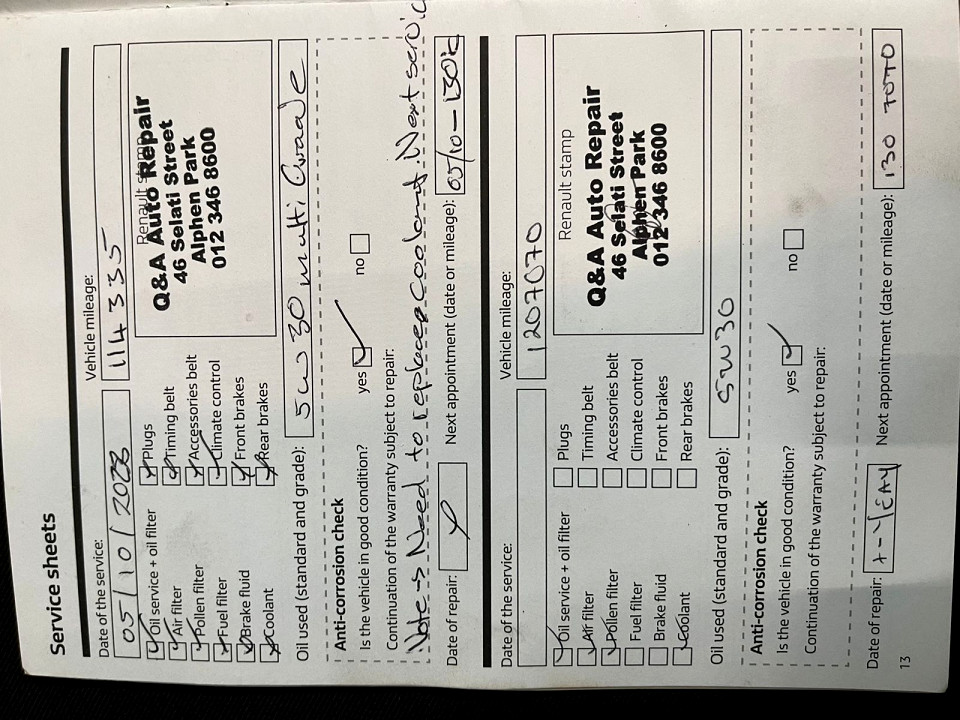 Service sheets
Date of the service:
05/10/2023
Vehicle mileage:
114335
Oil service + oil filter
Air filter
Pollen filter
Fuel filter
Brake fluid
Coolant
Plugs
Timing belt
Accessories belt
Climate control
Front brakes
Rear brakes
Renault stamp
Q&A Auto Repair
46 Selati Street
Alphen Park
012 346 8600
Oil used (standard and grade):
5w 30 multi Grade
Anti-corrosion check
Is the vehicle in good condition?
yes
no
Continuation of the warranty subject to repair:
Note → Need to replace coolant Next service
Date of repair:
Next appointment (date or mileage):
05/10 – 130k
Date of the service:
Vehicle mileage:
1207070
Oil service + oil filter
Air filter
Pollen filter
Fuel filter
Brake fluid
Coolant
Plugs
Timing belt
Accessories belt
Climate control
Front brakes
Rear brakes
Renault stamp
Q&A Auto Repair
46 Selati Street
Alphen Park
012 346 8600
Oil used (standard and grade):
5W30
Anti-corrosion check
Is the vehicle in good condition?
yes
no
Continuation of the warranty subject to repair:
Date of repair:
Next appointment (date or mileage):
130 7070
13